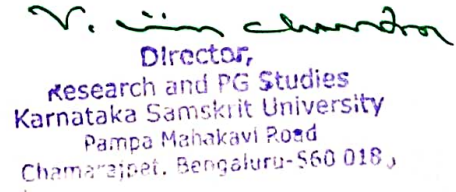 V. Chandra
Director,
Research and PG Studies
Karnataka Samskrit University
Pampa Mahakavi Road
Chamarajpet, Bengaluru-560 018,